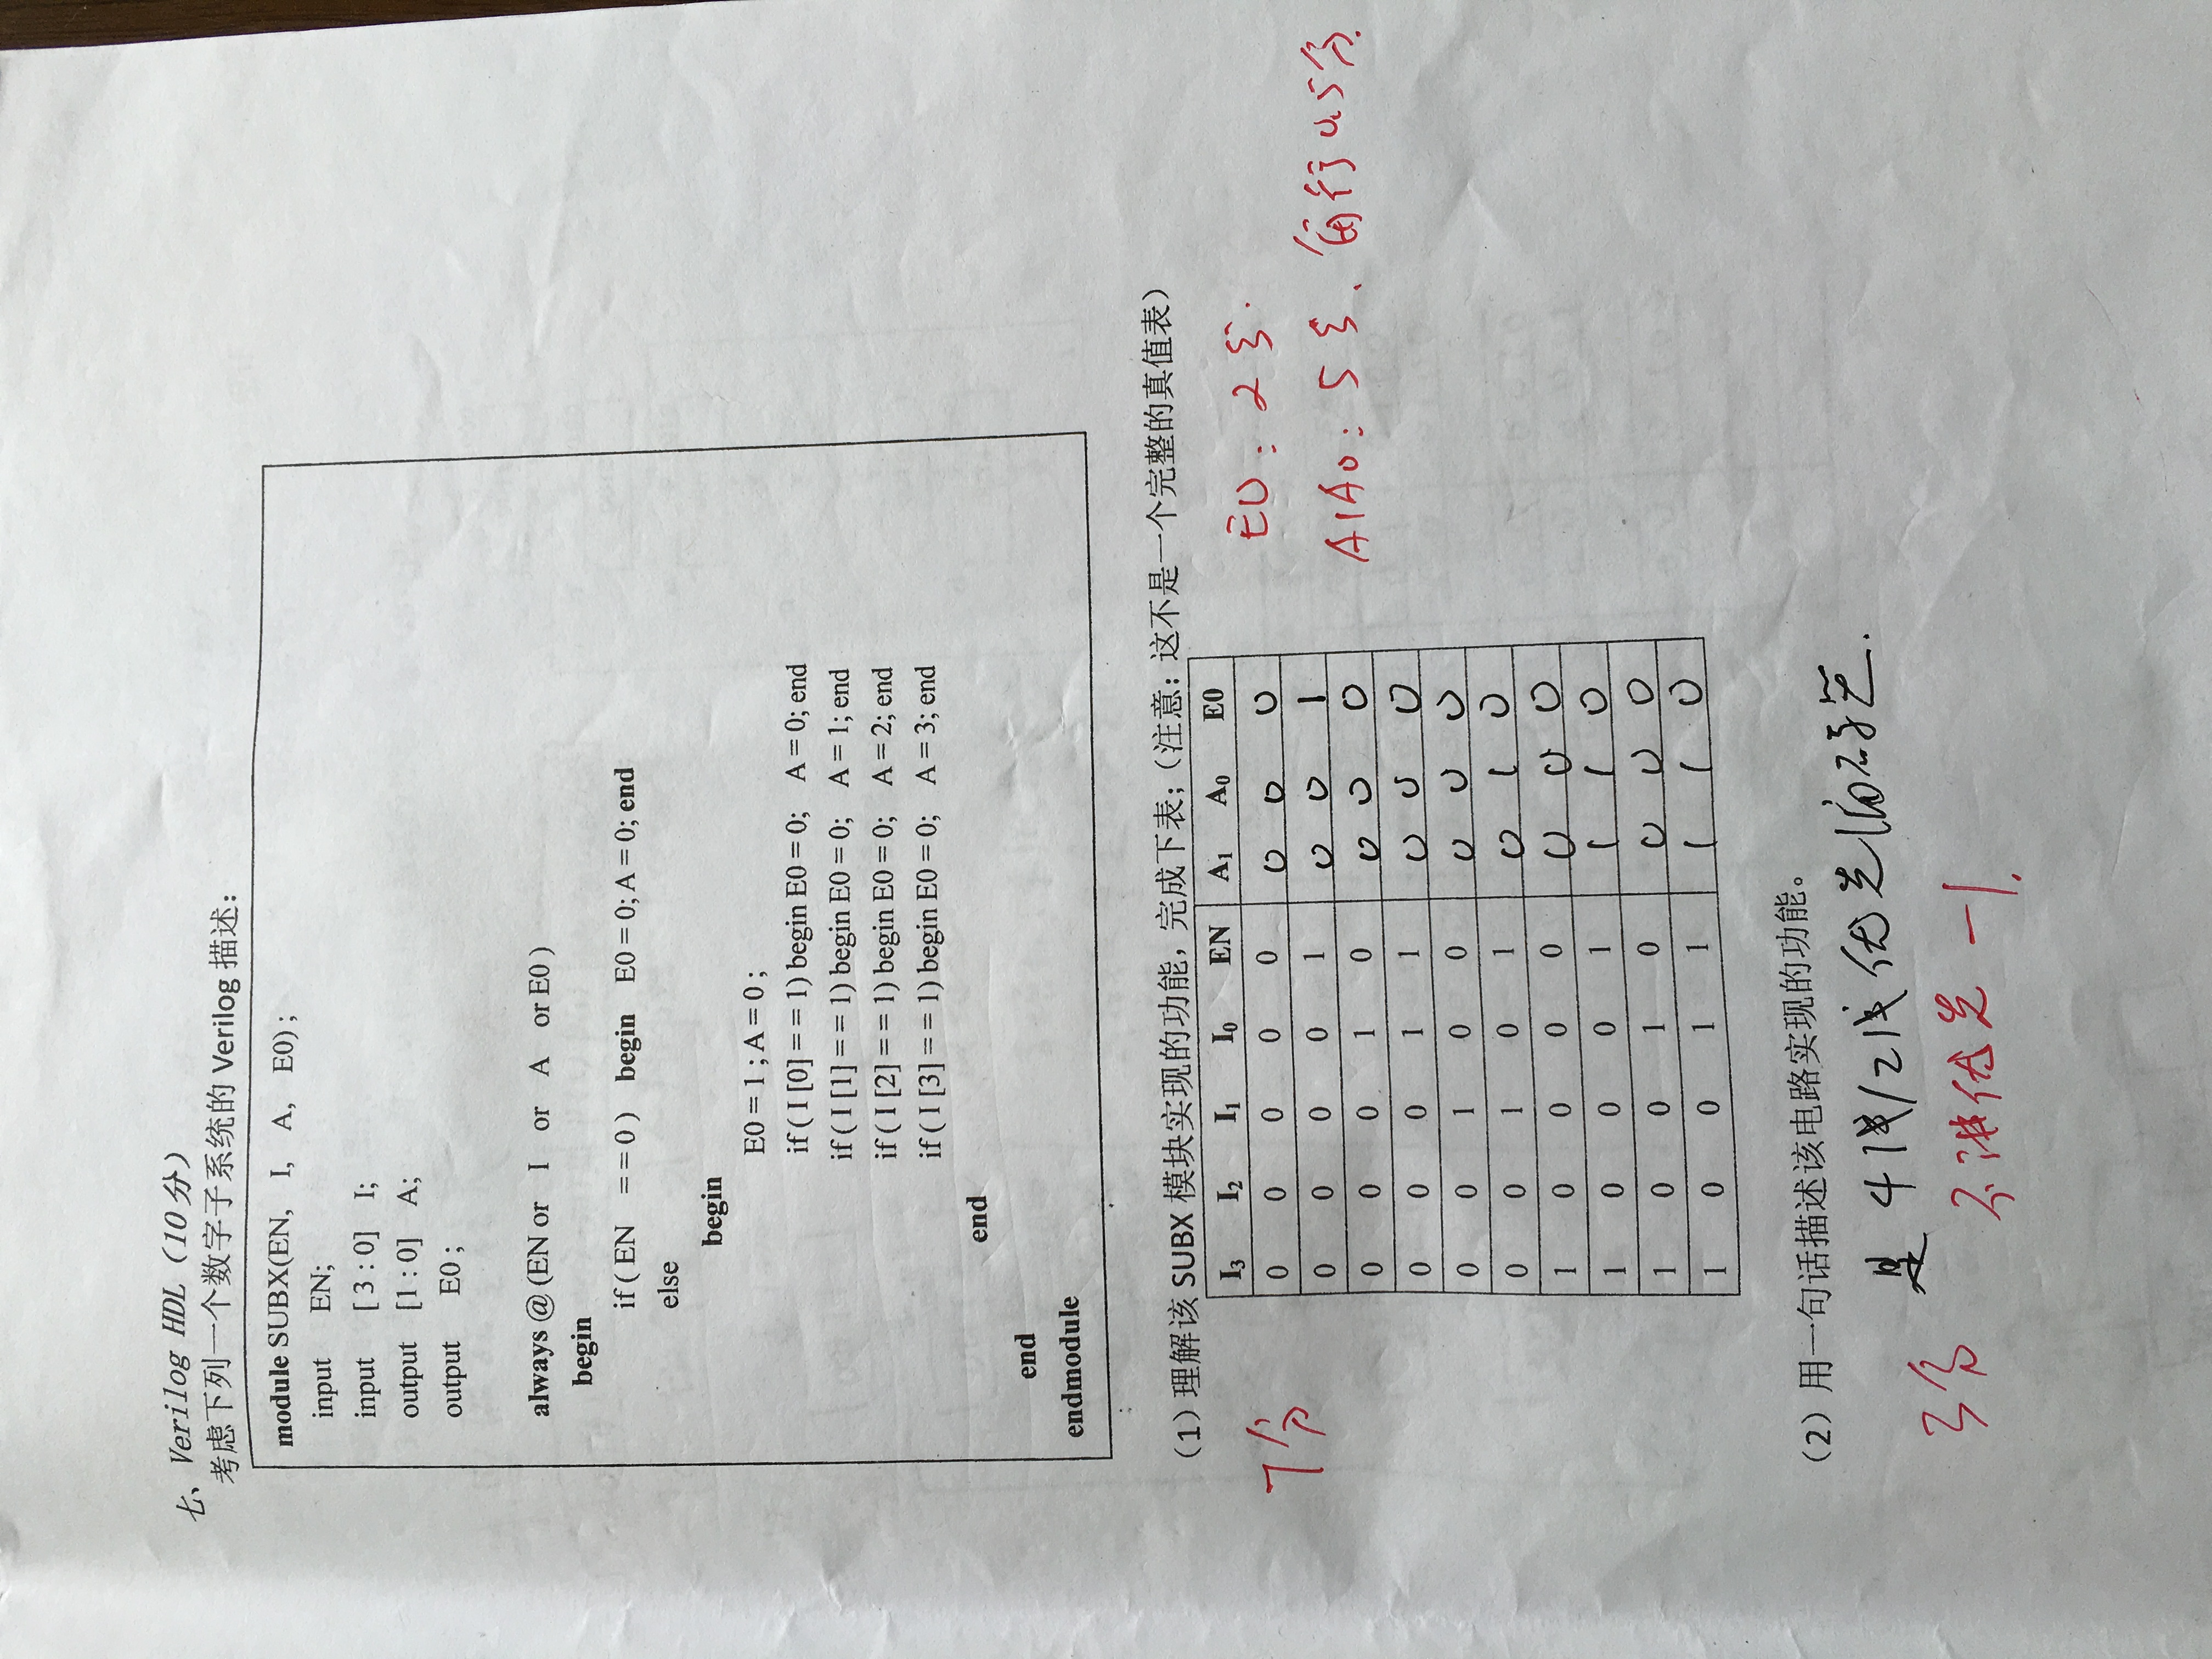 七、Verilog HDL（10 分）
考虑下列一个数字子系统的 Verilog 描述：
module SUBX(EN, I, A, E0) ;
input EN;
input [ 3 : 0] I;
output [1 : 0] A;
output E0 ;
always @ (EN or I or A or E0 )
begin
if ( EN = = 0 ) begin E0 = 0; A = 0; end
else
begin
E0 = 1 ; A = 0 ;
if ( I [0] = = 1) begin E0 = 0; A = 0; end
if ( I [1] = = 1) begin E0 = 0; A = 1; end
if ( I [2] = = 1) begin E0 = 0; A = 2; end
if ( I [3] = = 1) begin E0 = 0; A = 3; end
end
end
endmodule
（1）理解该 SUBX 模块实现的功能，完成下表；（注意：这不是一个完整的真值表）
I3 I2 I1 I0 EN A1 A0 E0
0 0 0 0 0 0 0 0
0 0 0 0 1 0 0 1
0 0 0 1 0 0 0 0
0 0 0 1 1 0 0 0
0 0 1 0 0 0 0 0
0 0 1 0 1 0 1 0
1 0 0 0 0 0 0 0
1 0 0 0 1 1 1 0
1 0 0 1 0 0 0 0
1 0 0 1 1 1 1 0
7分
E0：2分.
A1A0：5分、每行0.5分.
（2）用一句话描述该电路实现的功能。
是 4线/2线 优先编码器.
3分
不讲优先 -1.